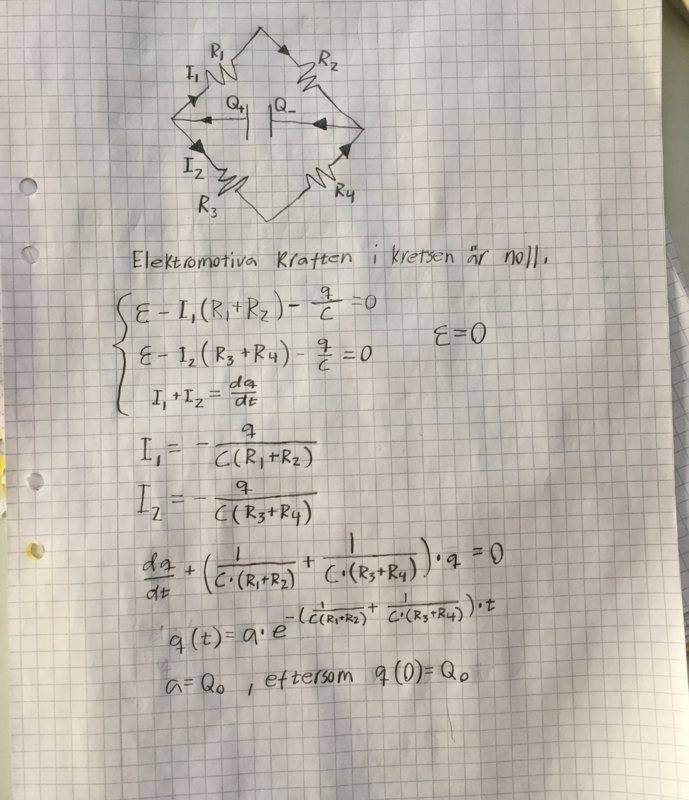 R₁ R₂
I₁
Q₊ Q₋
I₂
R₃ R₄
Elektromotiva Kraften i kretsen är noll.
ε - I₁(R₁+R₂) - q/C = 0
ε - I₂(R₃+R₄) - q/C = 0 ε=0
I₁+I₂ = dq/dt
I₁ = - q/C(R₁+R₂)
I₂ = - q/C(R₃+R₄)
dq/dt + (1/C·(R₁+R₂) + 1/C·(R₃+R₄))·q = 0
q(t) = a·e^-(1/C(R₁+R₂) + 1/C·(R₃+R₄))·t
a=Q₀, eftersom q(0)=Q₀